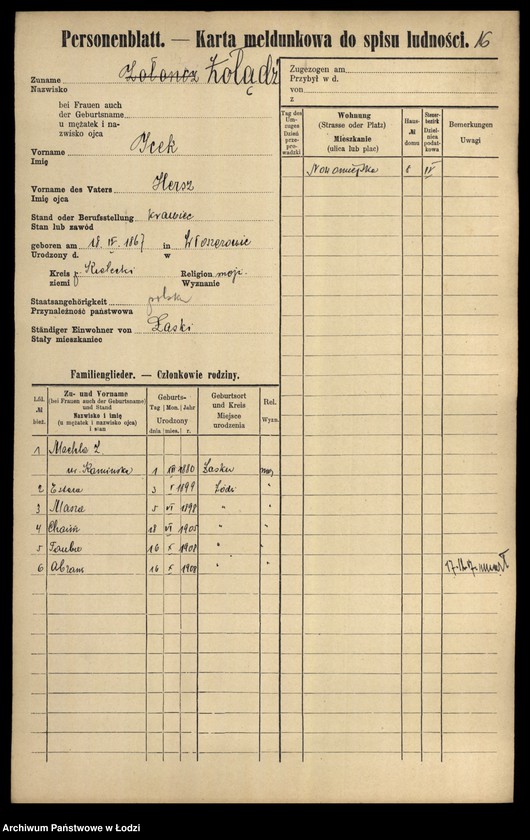 Personenblatt. — Karta meldunkowa do spisu ludności. 16
Zuname
Nazwisko
Żołądź
bei Frauen auch
der Geburtsname
u mężatek i na-
zwisko ojca
Vorname Icek
Imię
Vorname des Vaters Hersz
Imię ojca
Stand oder Berufsstellung krawiec
Stan lub zawód
geboren am 18. IV. 1867 in
Urodzony d. w
Kreis g. Kielecki Religion moj.
ziemi Wyznanie
Staatsangehörigkeit polska
Przynależność państwowa
Ständiger Einwohner von Łaski
Stały mieszkaniec
Zugezogen am
Przybył w d.
von
z
Tag des Um-zuges Dzień prze-pro-wadzki
Wohnung (Strasse oder Platz) Mieszkanie (ulica lub plac)
Haus-№ domu
Steuer-bezirk Dziel-nica podat-kowa
Bemerkungen Uwagi
Nowomiejska 8 IV
Familienglieder. — Członkowie rodziny.
Lfd. № bież.
Zu- und Vorname (bei Frauen auch der Geburtsname) und Stand Nazwisko i imię (u mężatek i nazwisko ojca) i stan
Geburts- Tag Mon. Jahr Urodzony dnia mies. r.
Geburtsort und Kreis Miejsce urodzenia
Rel. Wyzn.
1 Machla Ż.
ur. Kamińska 1 1880 Łasku moj
2 Estera 3 V 1899 Łódź "
3 Masza 5 VI 1898 " "
4 Chaim 18 VI 1905 " "
5 16 X 1908 " "
6 Abram 16 X 1908 " "
Archiwum Państwowe w Łodzi